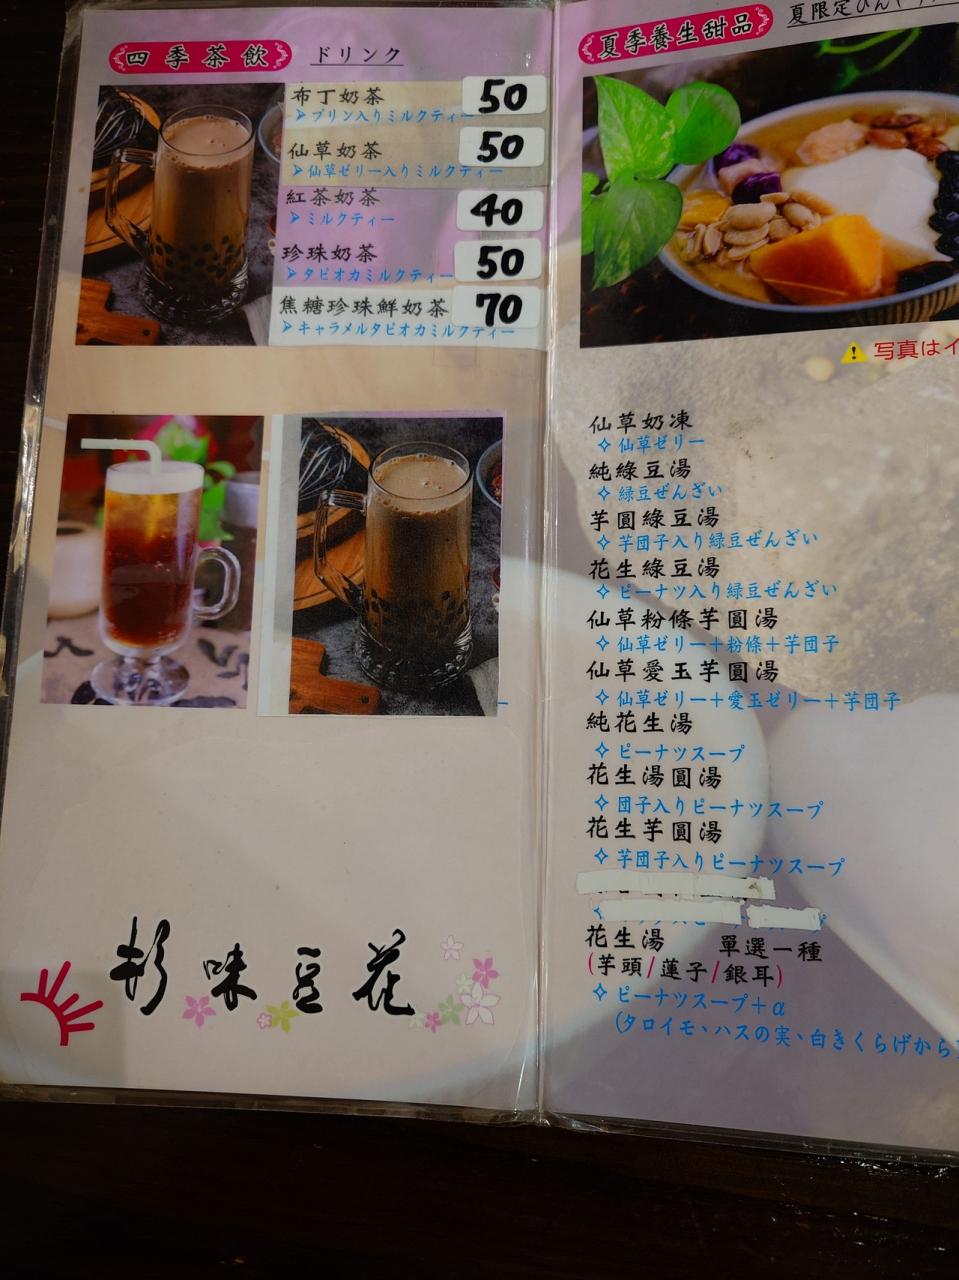 四季茶飲 ドリンク
布丁奶茶 50
➢プリン入りミルクティー
仙草奶茶 50
➢仙草ゼリー入りミルクティー
紅茶奶茶 40
➢ミルクティー
珍珠奶茶 50
➢タピオカミルクティー
焦糖珍珠鮮奶茶 70
➢キャラメルタピオカミルクティー
杉味豆花
夏季養生甜品 夏限定ひんやり
写真はイ
仙草奶凍
✧仙草ゼリー
純綠豆湯
✧緑豆ぜんざい
芋圓綠豆湯
✧芋団子入り緑豆ぜんざい
花生綠豆湯
✧ピーナツ入り緑豆ぜんざい
仙草粉條芋圓湯
✧仙草ゼリー＋粉條＋芋団子
仙草愛玉芋圓湯
✧仙草ゼリー＋愛玉ゼリー＋芋団子
純花生湯
✧ピーナツスープ
花生湯圓湯
✧団子入りピーナツスープ
花生芋圓湯
✧芋団子入りピーナツスープ
花生湯 單選一種
(芋頭/蓮子/銀耳)
✧ピーナツスープ＋α
(タロイモ、ハスの実、白きくらげから